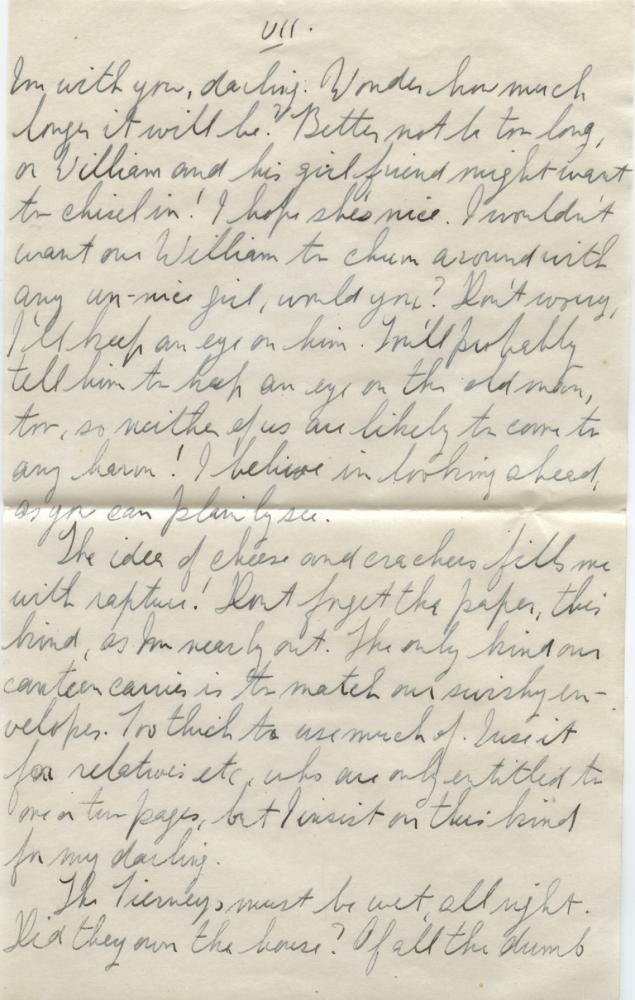 VII.
I'm with you, darling. Wonder how much
longer it will be? Better not be too long,
or William and his girl friend might want
to chisel in! I hope she's nice. I wouldn't
want our William to chum around with
any un-nice girl, would you? Don't worry,
I'll keep an eye on him. You'll probably
tell him to keep an eye on the old man,
too, so neither of us are likely to come to
any harm! I believe in looking ahead,
as you can plainly see.
The idea of cheese and crackers fills me
with rapture! Don't forget the paper, this
kind, as I'm nearly out. The only kind our
canteen carries is to match our swishy en-
velopes. Too thick to use much of. I use it
for relatives etc, who are only entitled to
one or two pages, but I insist on this kind
for my darling.
The Tierneys must be wet, all right.
Did they own the house? Of all the dumb